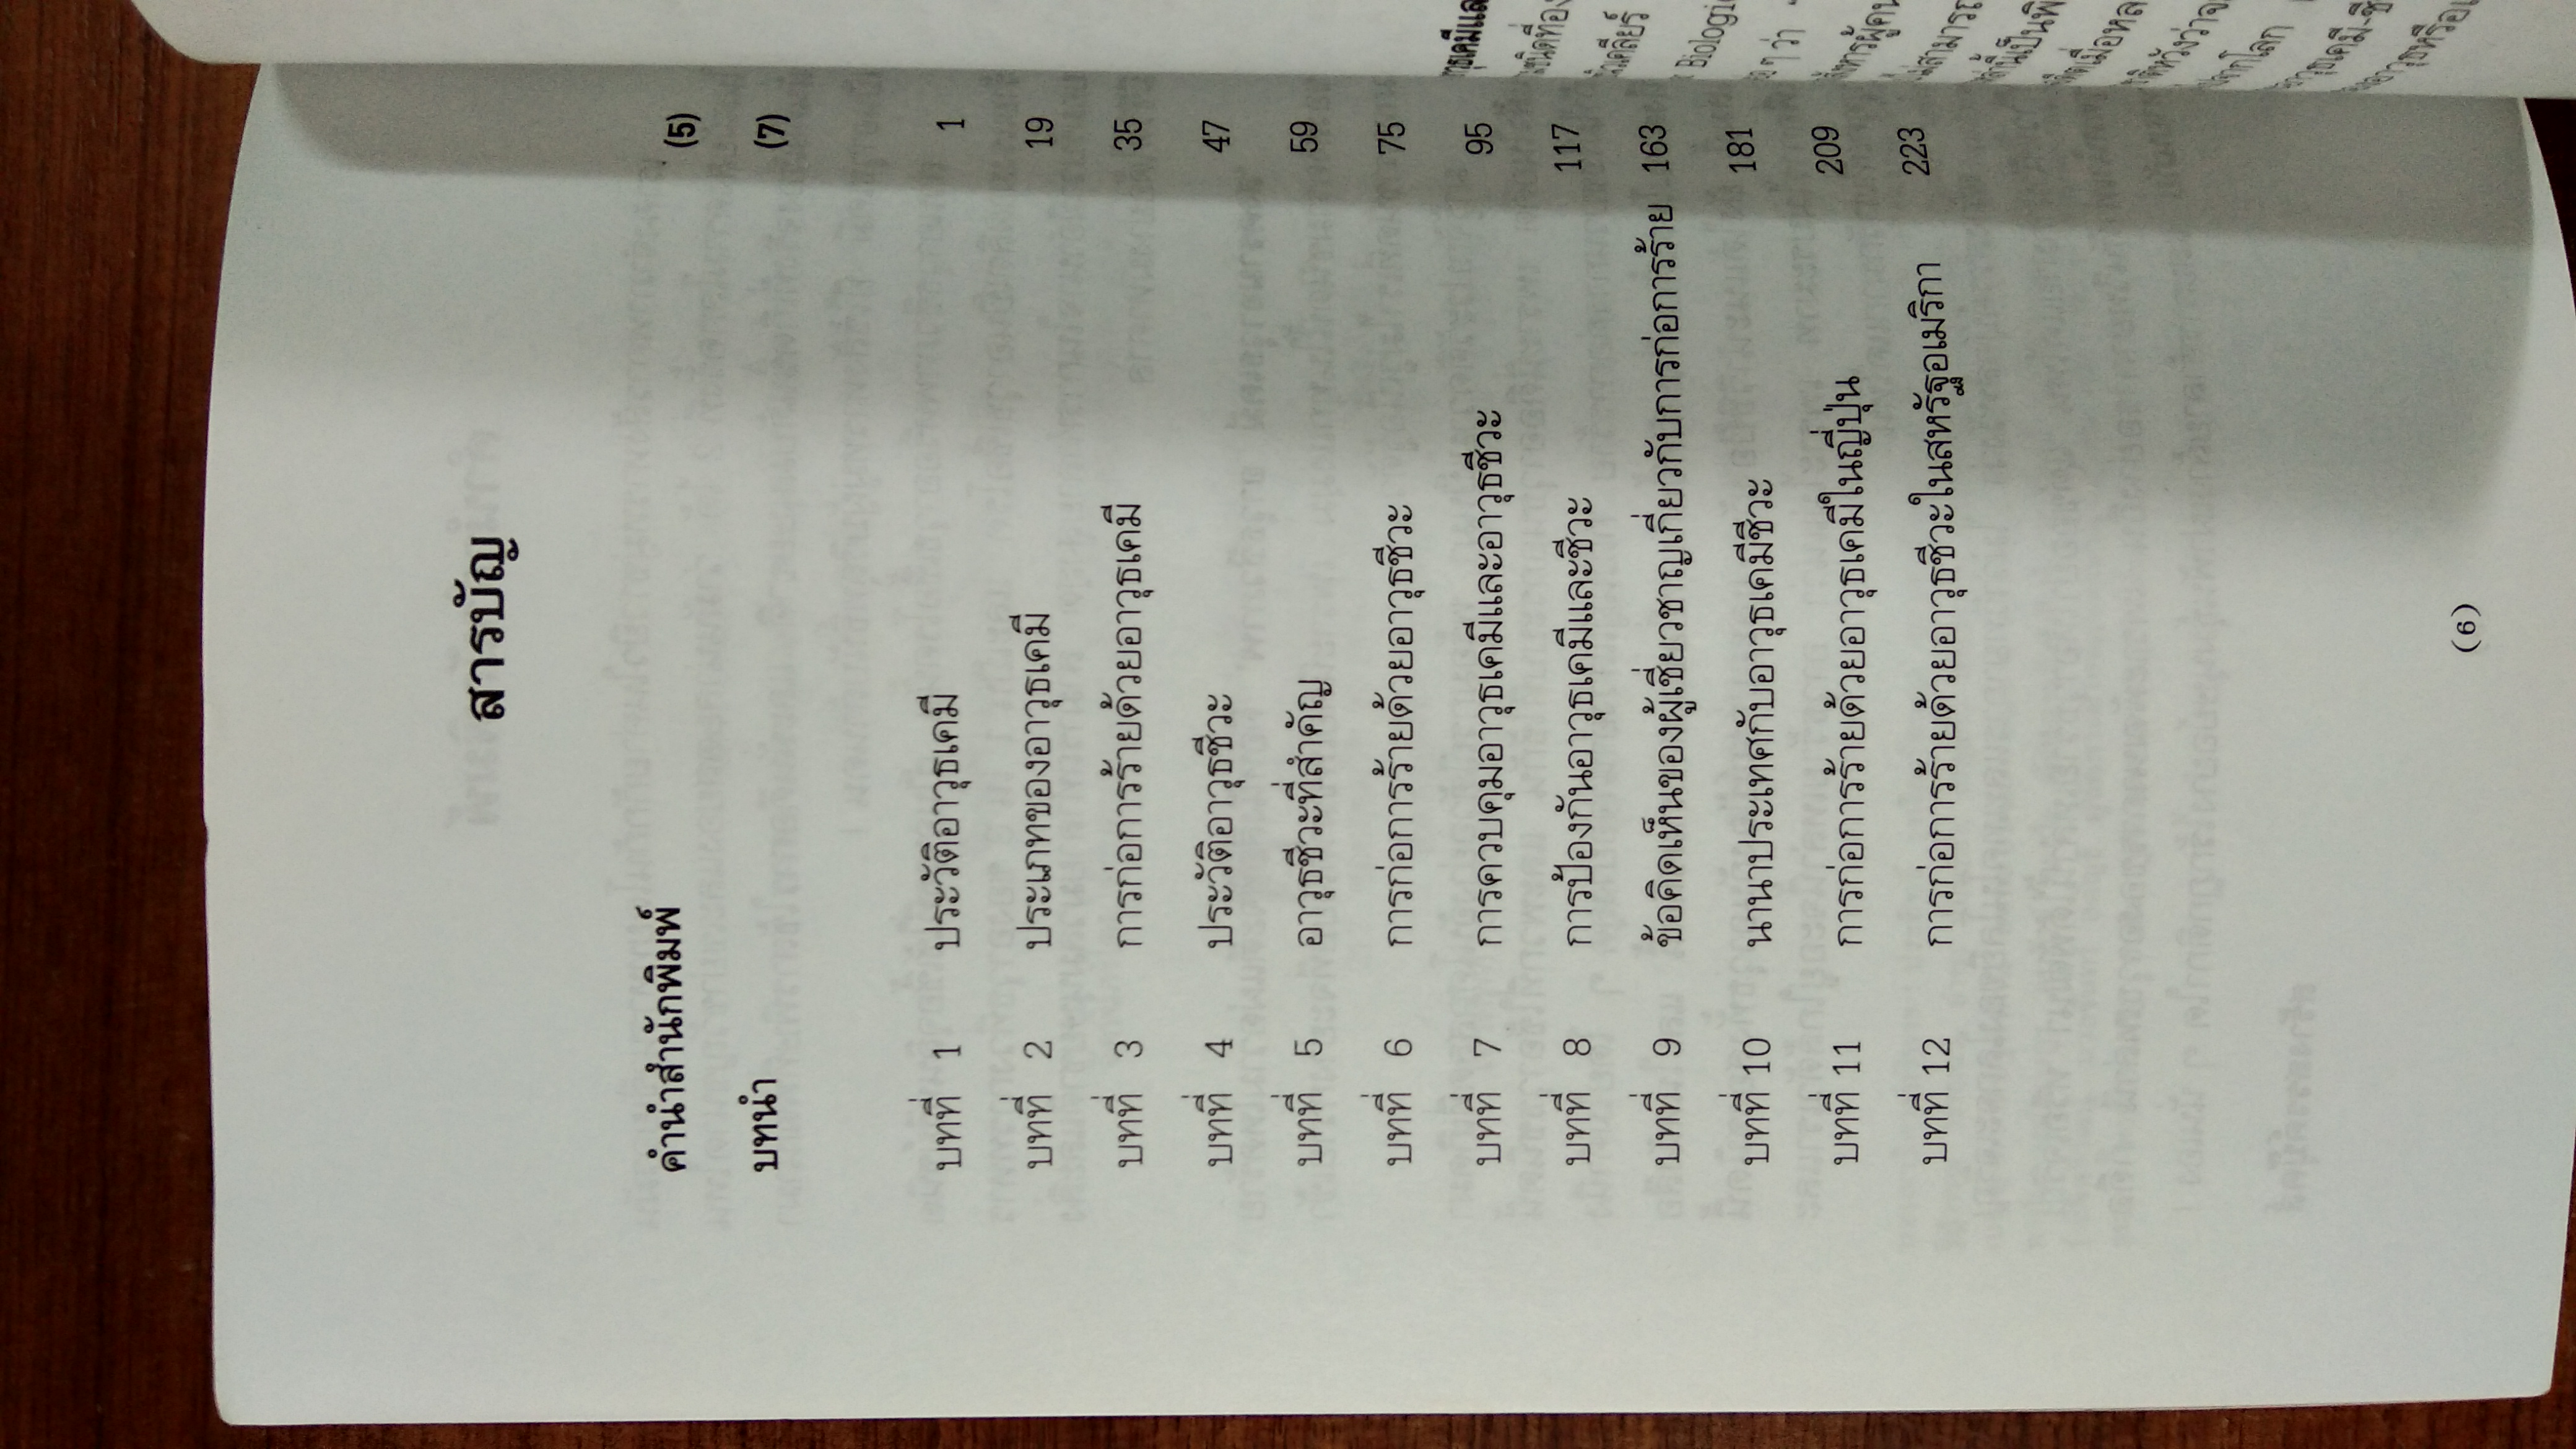 สารบัญ
คำนำสำนักพิมพ์ (5)
บทนำ (7)
บทที่ 1 ประวัติอาวุธเคมี 1
บทที่ 2 ประเภทของอาวุธเคมี 19
บทที่ 3 การก่อการร้ายด้วยอาวุธเคมี 35
บทที่ 4 ประวัติอาวุธชีวะ 47
บทที่ 5 อาวุธชีวะที่สำคัญ 59
บทที่ 6 การก่อการร้ายด้วยอาวุธชีวะ 75
บทที่ 7 การควบคุมอาวุธเคมีและอาวุธชีวะ 95
บทที่ 8 การป้องกันอาวุธเคมีและชีวะ 117
บทที่ 9 ข้อคิดเห็นของผู้เชี่ยวชาญเกี่ยวกับการก่อการร้าย 163
บทที่ 10 นานาประเทศกับอาวุธเคมีชีวะ 181
บทที่ 11 การก่อการร้ายด้วยอาวุธเคมีในญี่ปุ่น 209
บทที่ 12 การก่อการร้ายด้วยอาวุธชีวะในสหรัฐอเมริกา 223
(6)